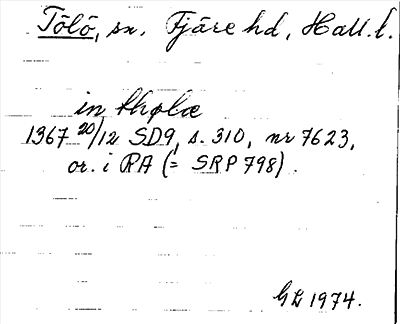 Tölö, sn. Fjäre hd, Hall. l.
in thølæ
1367 20/12 SD9, s. 310, nr 7623,
or. i RA (= SRP 798).
GL 1974.